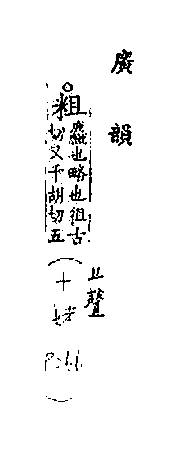 廣韻
○粗
麤也略也徂古
切又千胡切五
上聲
(十姥